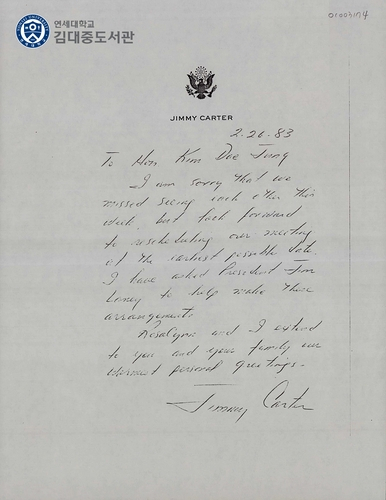 연세대학교
김대중도서관
01003174
JIMMY CARTER
2-26-83
To Hon Kim Dae Jung
I am sorry that we
missed seeing each other this
week, but look forward
to rescheduling our meeting
at the earliest possible date.
I have asked President Jim
Laney to help make these
arrangements.
Rosalynn and I extend
to you and your family our
warmest personal greetings.
Jimmy Carter